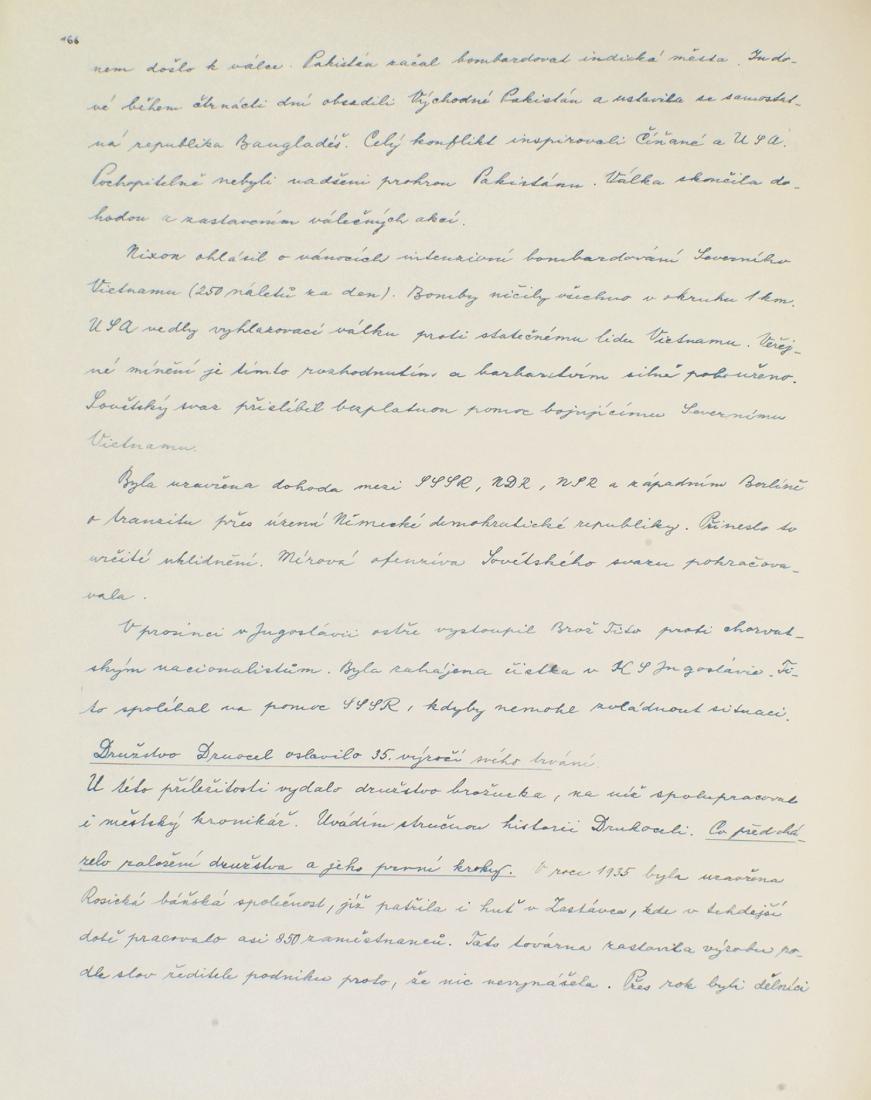 166
nem došlo k válce. Pakistán začal bombardovat indická města. Indo-
vé během čtrnácti dní obsadili Východné Pakistán a ustavila se samostat-
ná republika Bangladéš. Celý konflikt inspirovali Číňané a USA.
Pochopitelně nebyli nadšeni prohrou Pakistánu. Válka skončila do-
hodou a zastavením válečných akcí.
Nixon ohlásil o vánocích intenzivní bombardování Severního
Vietnamu (250 náletů za den). Bomby ničily všechno v okruhu 1 km.
USA vedly vyhlazovací válku proti statečnému lidu Vietnamu. Veřej-
né mínění je tímto rozhodnutím a barbarstvím silně pobouřeno.
Sovětský svaz přislíbil bezplatnou pomoc bojujícímu Severnímu
Vietnamu.
Byla uzavřena dohoda mezi SSSR, NDR, NSR a západním Berlíně
o tranzitu přes území Německé demokratické republiky. Přineslo to
určité uklidnění. Mírová ofenzíva Sovětského svazu pokračova-
vala.
V prosinci v Jugoslávii ostře vystoupil Brož Tito proti chorvat-
ským nacionalistům. Byla zahájena čistka v KS Jugoslávie. Ti-
to spoléhal na pomoc SSSR, kdyby nemohl zvládnout situaci.
Družstvo Druocel oslavilo 35. výročí svého trvání.
U této příležitosti vydalo družstvo brožurka, na níž spolupracoval
i městský kronikář. Uvádím stručnou historii Drukoceli. Co předchá-
zelo založení družstva a jeho první kroky. V roce 1935 byla uzavřena
Rosická báňská společnost, jíž patřila i huť v Zastávce, kde v tehdejší
době pracovalo asi 850 zaměstnanců. Tato továrna zastavila výrobu po-
dle slov ředitele podniku proto, že nic nevynášela. Přes rok byli dělníci